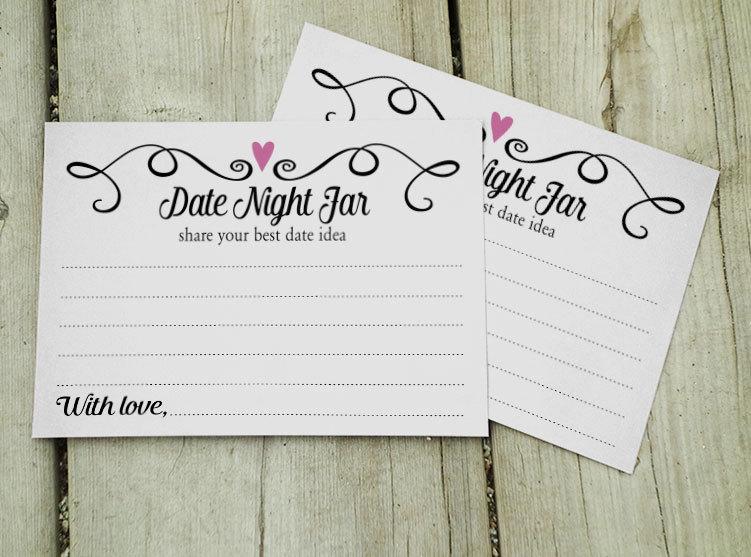 Date Night Jar
share your best date idea
With love,
Night Jar
st date idea